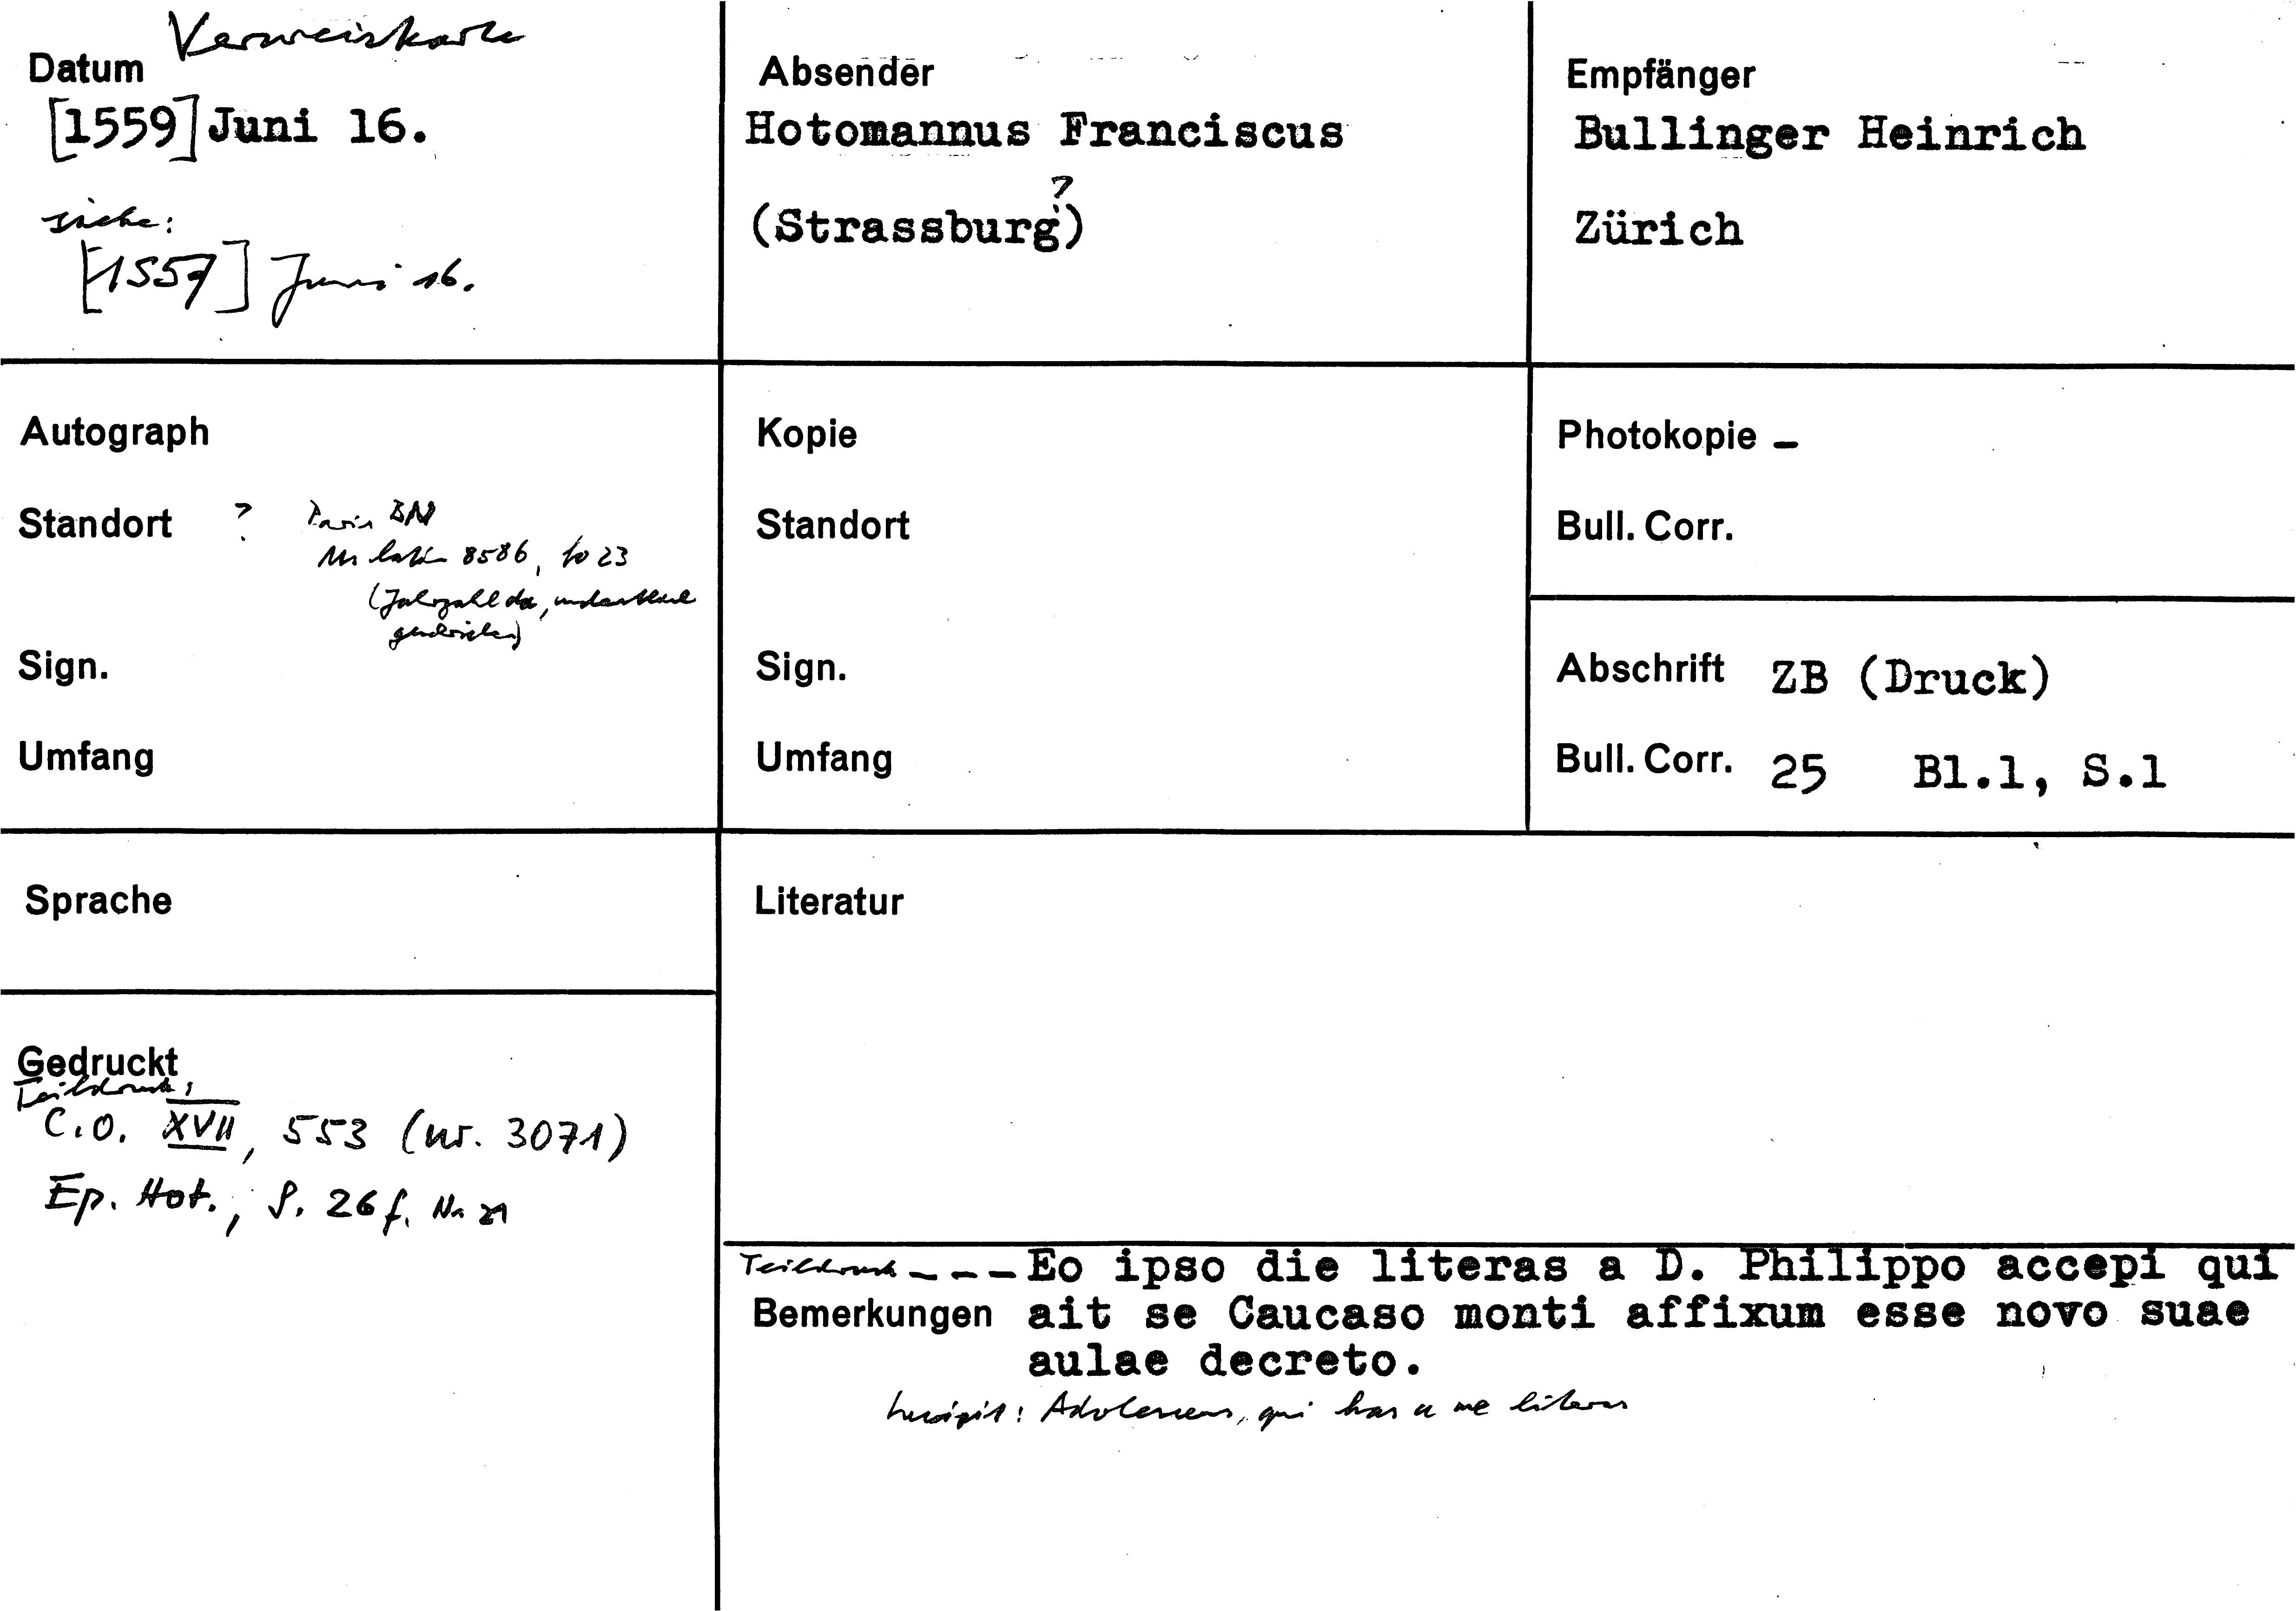 Verweiskarte
Datum
[1559] Juni 16.
siehe:
[1557] Juni 16.
Absender
Hotomannus Franciscus
?
(Strassburg?)
Empfänger
Bullinger Heinrich
Zürich
Autograph
Standort ? Paris BN
Ms latin 8586, fo 23
(Jahrzahl da, undeutlich
geschrieben)
Sign.
Umfang
Kopie
Standort
Sign.
Umfang
Photokopie -
Bull. Corr.
Abschrift ZB (Druck)
Bull. Corr. 25 Bl.1, S.1
Sprache
Gedruckt
Teildruck:
C.O. XVII, 553 (Nr. 3071)
Ep. Hot., S. 26 f. No 21
Literatur
Teildruck - - - Eo ipso die literas a D. Philippo accepi qui
Bemerkungen ait se Caucaso monti affixum esse novo suae
aulae decreto.
Incipit: Adolescens, qui has a me literas